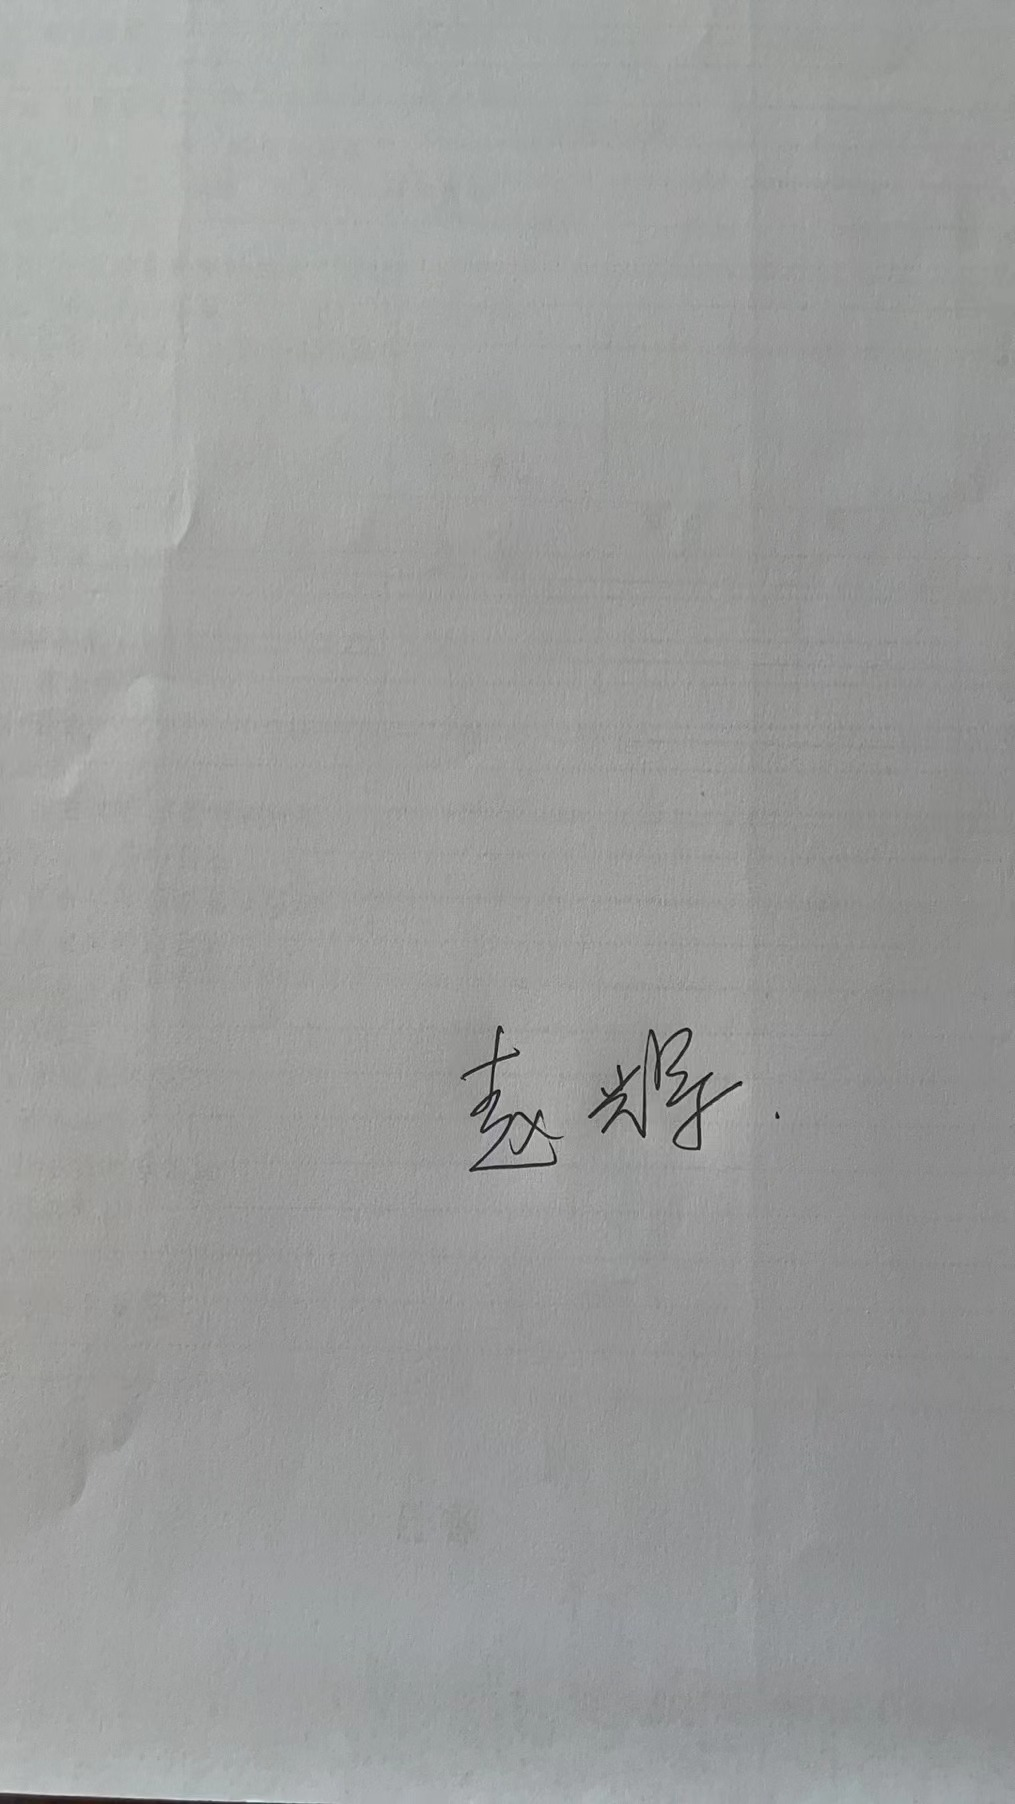 赵辉.